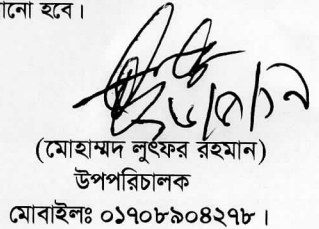 হবে।
(মোহাম্মদ লুৎফর রহমান)
উপপরিচালক
মোবাইলঃ ০১৭০৮৯০৪২৭৮।